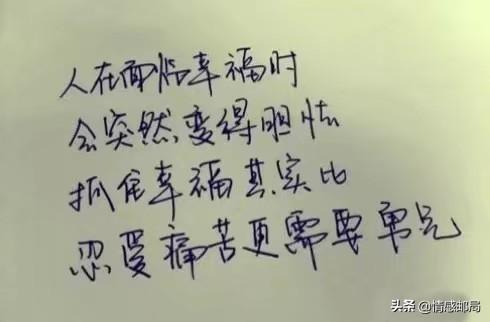 人在面临幸福时
会突然变得胆怯
抓住幸福其实比
忍受痛苦更需要勇气
头条 @情感邮局